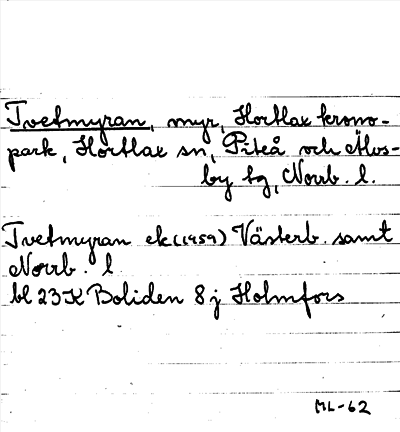 Tvetmyran, myr, Hortlax krono-
park, Hortlax sn, Piteå och Älvs-
by tg, Norrb. l.
Tvetmyran ek (1959) Västerb. samt
Norrb. l
bl 23 K Boliden 8 j Holmfors
ML-62